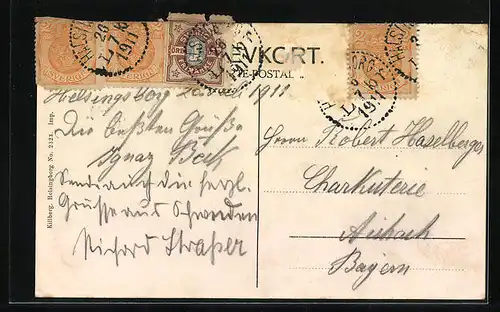 VKORT.
E-POSTAL
Helsingborg 1911
Die besten Grüße
Ignaz Beck
Sende auch die herzl.
Grüsse aus Schweden
Richard Straßer
Herrn Robert Haselberger
Charkuterie
Aichach
Bayern
Killberg, Helsingborg No. 2123. Imp.